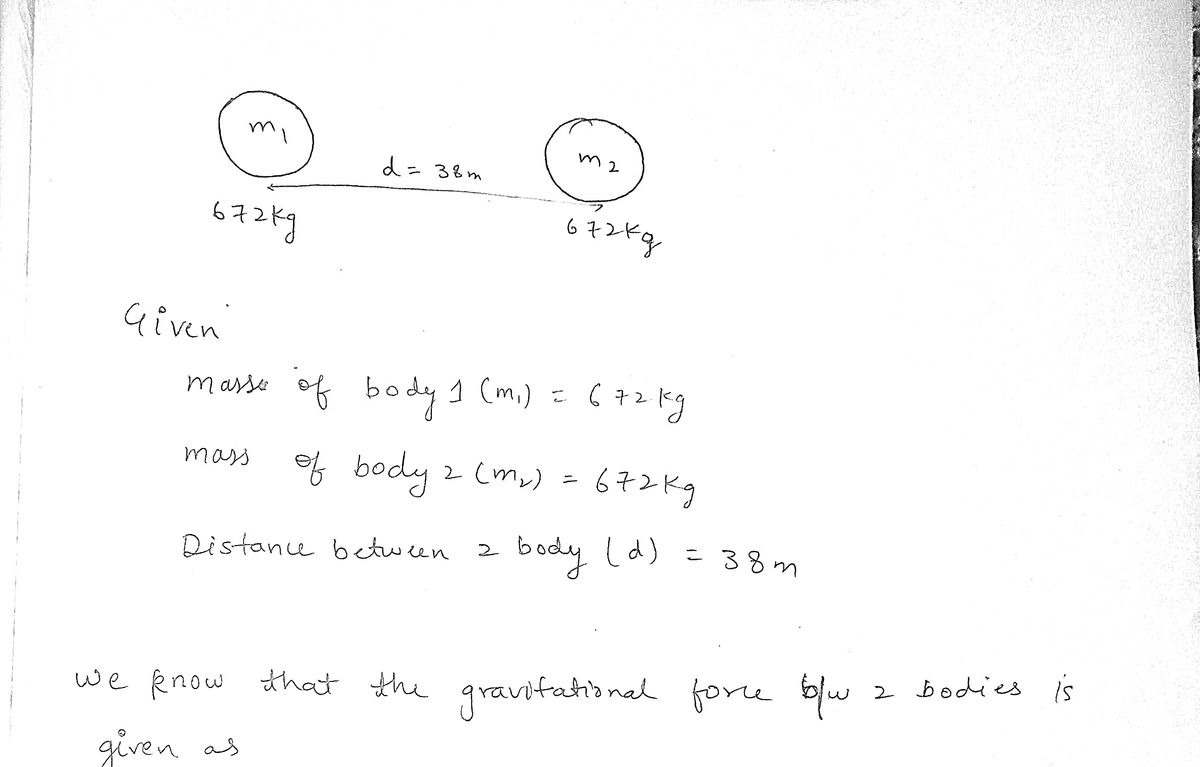 m₁
m₂
d = 38m
672kg
672kg
Given
masse of body 1 (m₁) = 672kg
mass of body 2 (m₂) = 672kg
Distance between 2 body (d) = 38m
we know that the gravitational force b/w 2 bodies is
given as